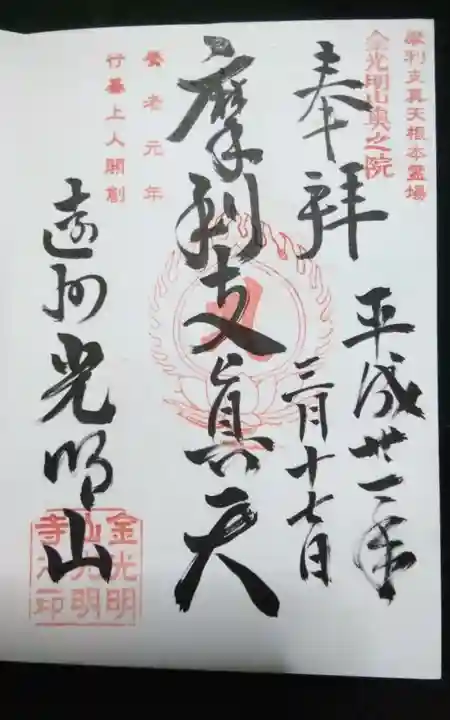 摩利支真天根本霊場
金光明山奥之院
奉拝
平成廿一年
三月十七日
摩利支眞天
養老元年
行基上人開創
遠州光明山
金光明
山光明
寺之印